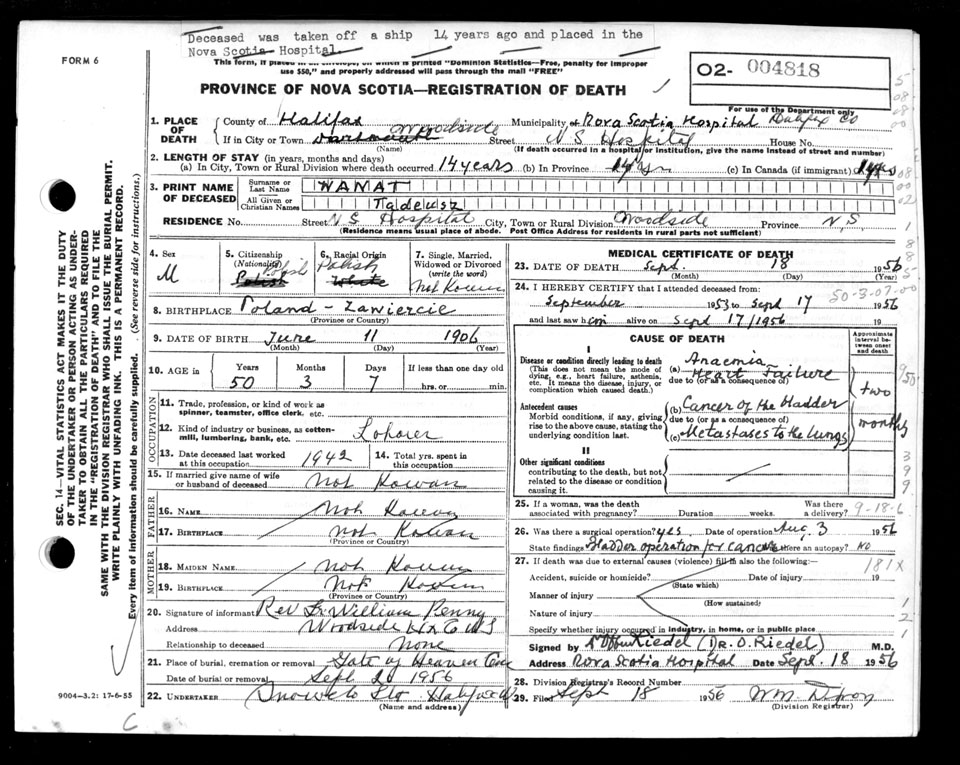 Deceased was taken off a ship 14 years ago and placed in the
Nova Scotia Hospital.
FORM 6
use $50," and properly addressed will pass through the mail "FREE"
PROVINCE OF NOVA SCOTIA—REGISTRATION OF DEATH
O2- 004818
For use of the Department only
1. PLACE OF DEATH
County of Halifax Municipality of Nova Scotia Hospital Halifax Co
If in City or Town Dartmouth Woodside Street N S Hospital House No.
(Name) (If death occurred in a hospital or institution, give the name instead of street and number)
2. LENGTH OF STAY (in years, months and days)
(a) In City, Town or Rural Division where death occurred 14 years (b) In Province 14 yrs (c) In Canada (if immigrant) 14 yrs
3. PRINT NAME OF DECEASED
Surname or Last Name WANAT
All Given or Christian Names Tadeusz
RESIDENCE No. Street N S Hospital City, Town or Rural Division Woodside Province N.S.
(Residence means usual place of abode. Post Office Address for residents in rural parts not sufficient)
4. Sex
M
5. Citizenship (Nationality)
Polish
Polish
6. Racial Origin
Polish
White
7. Single, Married, Widowed or Divorced (write the word)
Not Known
8. BIRTHPLACE Poland - Zawiercie
(Province or Country)
9. DATE OF BIRTH June 11 1906
(Month) (Day) (Year)
10. AGE in Years Months Days If less than one day old
50 3 7 hrs. or min.
OCCUPATION
11. Trade, profession, or kind of work as spinner, teamster, office clerk, etc.
12. Kind of industry or business, as cotten-mill, lumbering, bank, etc. Laborer
13. Date deceased last worked at this occupation 1942
14. Total yrs. spent in this occupation
15. If married give name of wife or husband of deceased not Known
FATHER
16. NAME Not Known
17. BIRTHPLACE not Known
(Province or Country)
MOTHER
18. MAIDEN NAME not Known
19. BIRTHPLACE Not Known
(Province or Country)
20. Signature of informant Rev William Penny
Address Woodside Hx Co N S
Relationship to deceased none
21. Place of burial, cremation or removal Gate of Heaven Cem
Date of burial or removal Sept 1956
22. UNDERTAKER Snow & Co Halifax
(Name and address)
9004-3.2: 17-6-55
MEDICAL CERTIFICATE OF DEATH
23. DATE OF DEATH Sept. 18 1956
(Month) (Day) (Year)
24. I HEREBY CERTIFY that I attended deceased from:
September 1953 to Sept 17 1956
and last saw him alive on Sept 17/1956 19
50-3-07-00
CAUSE OF DEATH
Approximate interval between onset and death
I
Disease or condition directly leading to death
(This does not mean the mode of dying, e.g., heart failure, asthenia, etc. It means the disease, injury, or complication which caused death.)
(a) Anaemia
Heart Failure
due to (or as a consequence of)
Antecedent causes
Morbid conditions, if any, giving rise to the above cause, stating the underlying condition last.
(b) Cancer of the bladder
due to (or as a consequence of)
(c) Metastases to the lungs
two months
II
Other significant conditions
contributing to the death, but not related to the disease or condition causing it.
25. If a woman, was the death associated with pregnancy? Duration weeks. Was there a delivery?
9-18-6
26. Was there a surgical operation? yes. Date of operation Aug. 3 1956
State findings Bladder operation for cancer Was there an autopsy? No
27. If death was due to external causes (violence) fill in also the following:
181X
Accident, suicide or homicide? Date of injury 19
(State which)
Manner of injury
(How sustained)
Nature of injury
Specify whether injury occurred in industry, in home, or in public place
Signed by Riedel (DR. O. Riedel) M.D.
Address Nova Scotia Hospital Date Sept. 18 1956
28. Division Registrar's Record Number
29. Filed Sept 18 1956 Wm. Dixon
(Division Registrar)
SEC. 14—VITAL STATISTICS ACT MAKES IT THE DUTY
OF THE UNDERTAKER OR PERSON ACTING AS UNDERTAKER
TO OBTAIN ALL THE PARTICULARS REQUIRED
IN THE "REGISTRATION OF DEATH" AND TO FILE THE
SAME WITH THE DIVISION REGISTRAR WHO SHALL ISSUE THE BURIAL PERMIT.
WRITE PLAINLY WITH UNFADING INK. THIS IS A PERMANENT RECORD.
Every item of information should be carefully supplied. (See reverse side for instructions.)